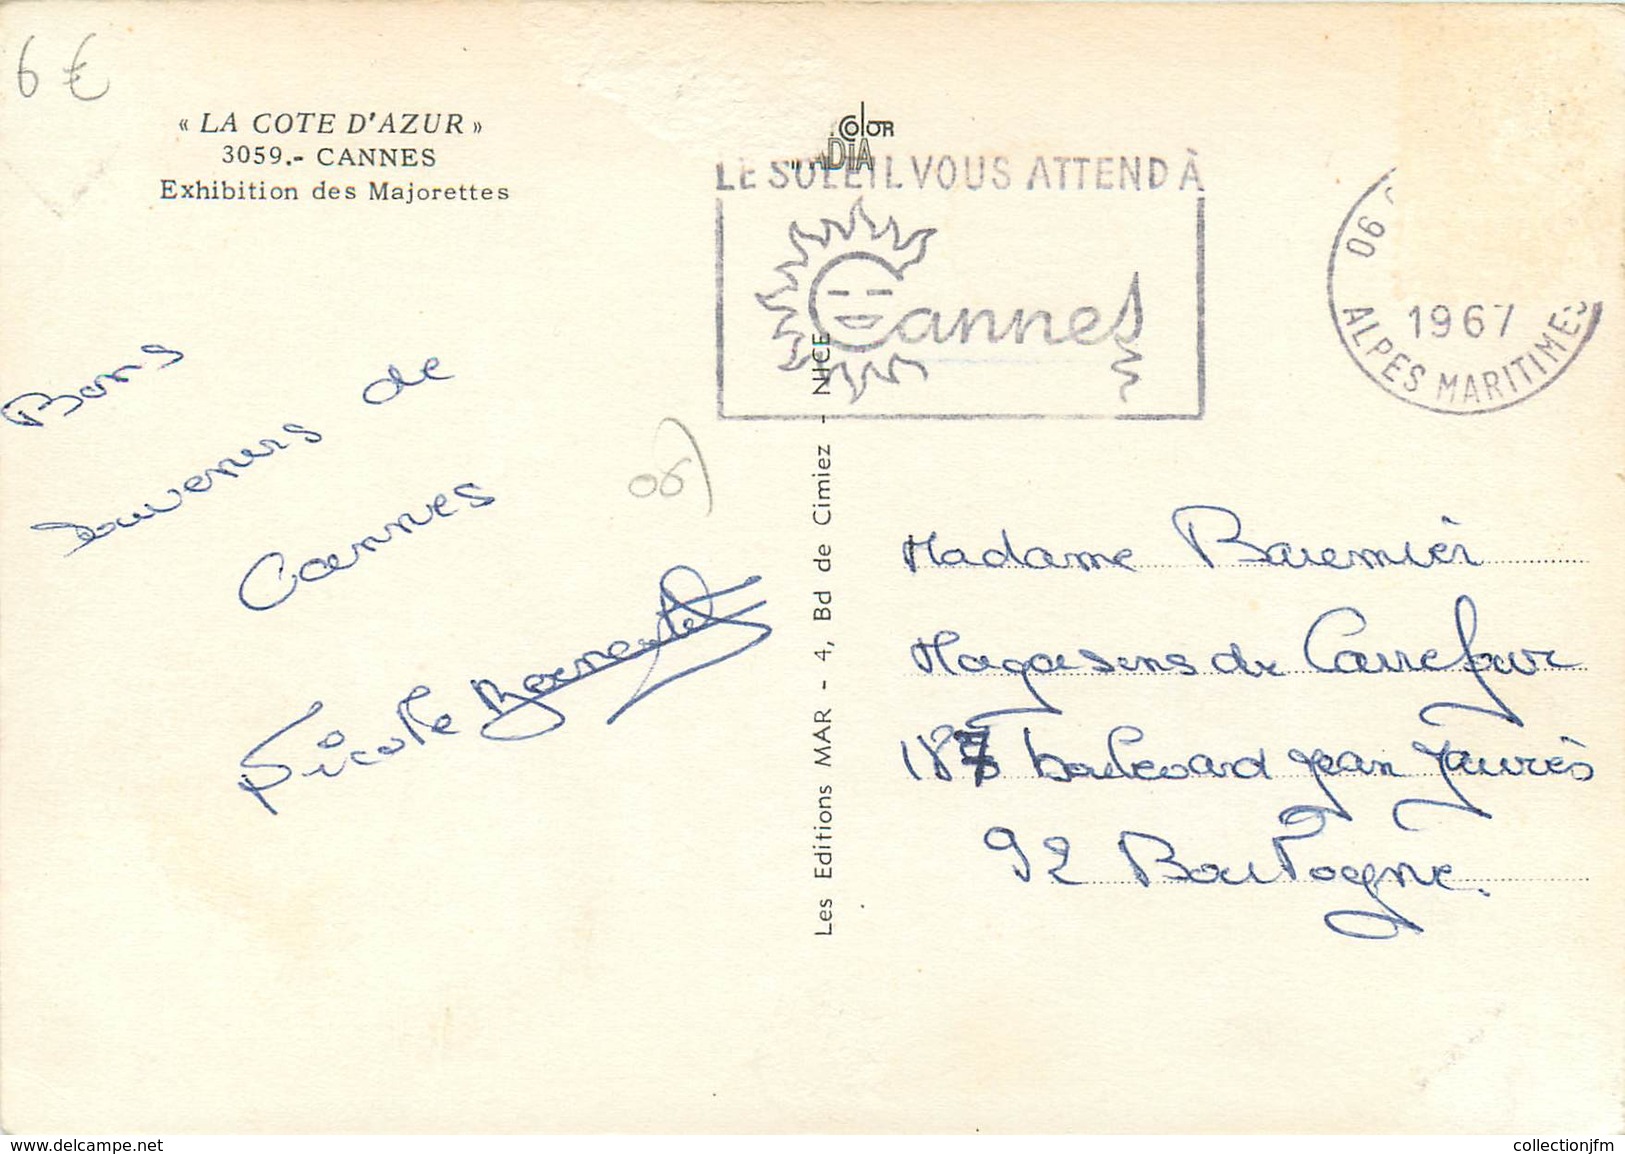 6 €
« LA COTE D'AZUR »
3059.- CANNES
Exhibition des Majorettes
COLOR
LE SOLEIL VOUS ATTEND À
Cannes
06
1967
ALPES MARITIMES
Bons
souvenirs de
Cannes
Nicole
06)
Les Editions MAR - 4, Bd de Cimiez - NICE
Madame
Magasins de Carrefour
187 boulevard Jean Jaurès
92 Boulogne.
www.delcampe.net
collectionjfm